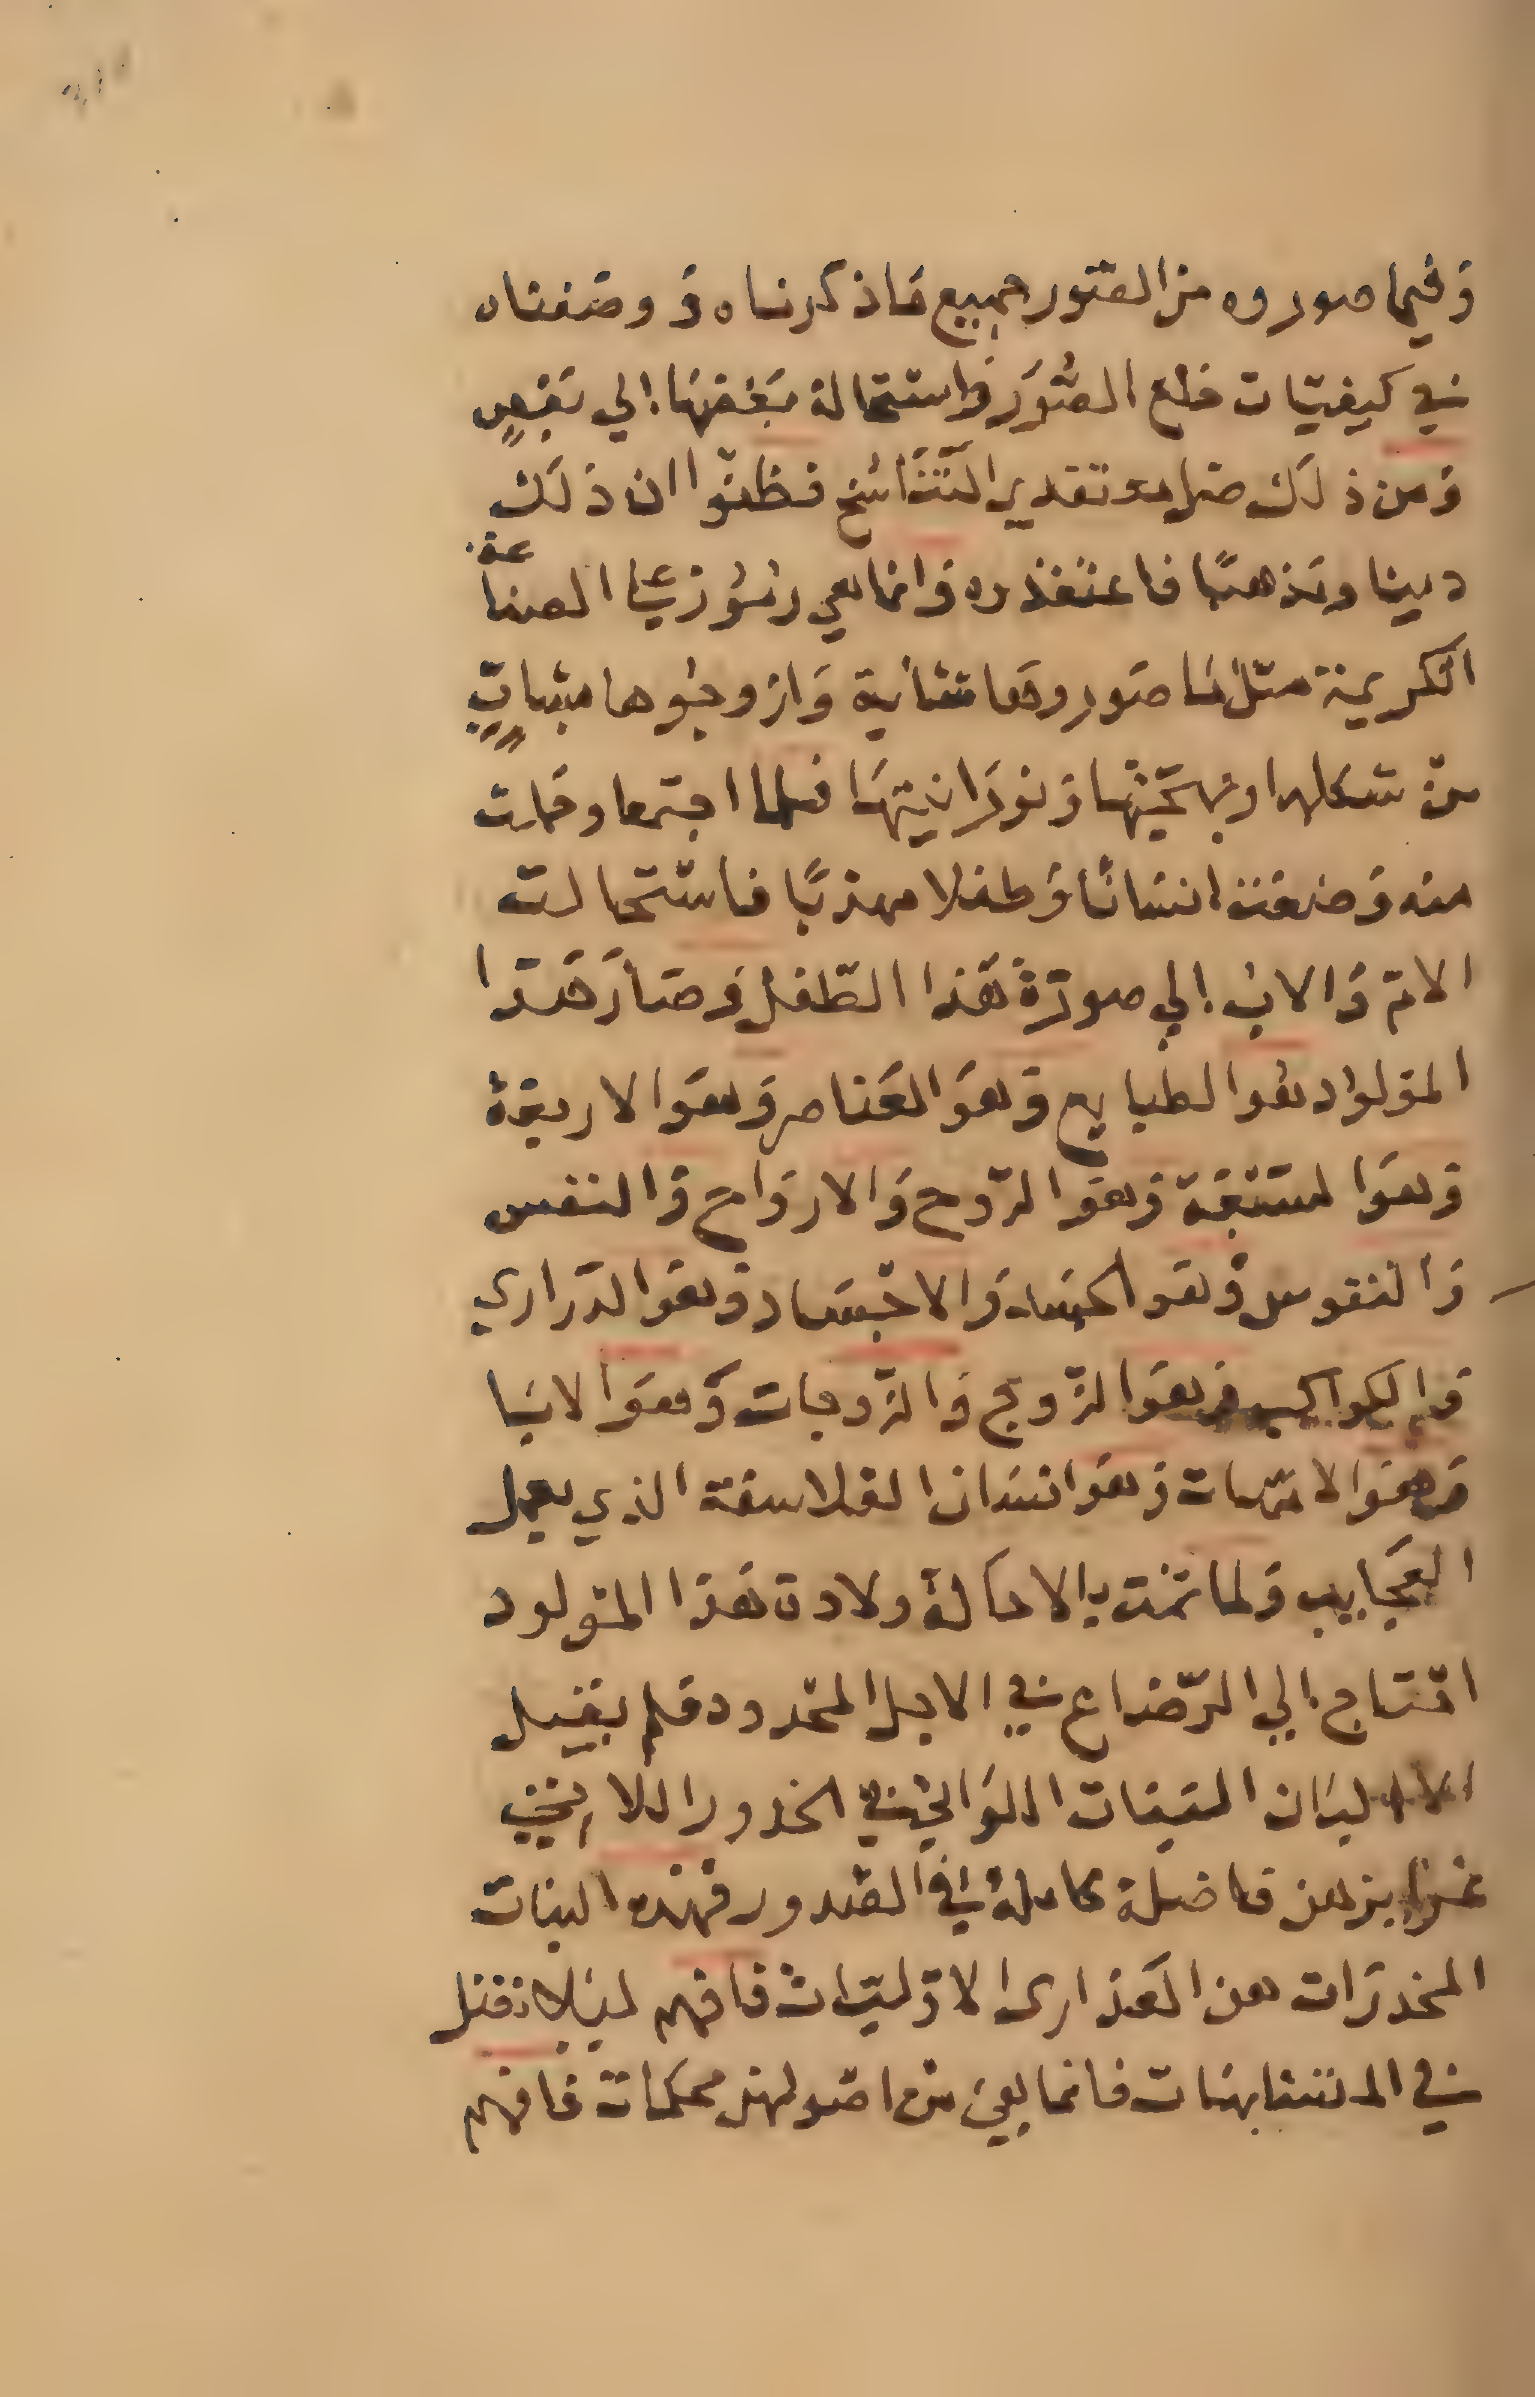 وَفيما صوروه من الصّور جميع مَا ذكرناه وَ وصَفناه
في كيفيّات خلع الصُّوَر وَاستحالة بَعْضهَا إلي بَعْضٍ
وَمن ذلَك ضل تقدير التَّنَاسُخ فظنّوا ان ذَلَك
دينا ومَذهبًا فاعتقدوه وَانما هي رُمُوز علي الصناعة
الكريمة مثل مَا صَوروهَا شابة وَازوجُوها بشابٍّ
من شكلها وبهجتها وَنورَانيتهَا فلما اجتمعا وحَملت
منه وَضعَت انسَانًا وَطفلا مهذبًا فاستحالت
الامّ وَالاب إلي صورَة هَذا الطّفل وَصَارَ هَذا
المَولود هُوَ الطبايع وَهوَ العَناصر وَهوَ الاربعَة
وَهوَ السَبْعَة وَهوَ الرّوح وَالاروَاح وَالنفس
وَالنفوس وَهوَ الجسَد وَالاجْسَاد وَهوَ الدّراري
وَالكواكب وَهوَ الزّوج وَالزّوجات وَهوَ الابَا
وَهوَ الامّهات وَهوَ انسَان الفلاسفة الذي يعمل
العجَايب وَلما تمت بالاحَالة ولادة هَذا المَولود
احتاج إلي الرّضاع في الاجل المحْدود فلم يقبل
الا البَان البَنات اللوَاتي في الخدور اللاتي
غرايزهن فاضلة كاملة في القدور فهَذه البنات
المخدرَات هن العَذارى الاوّليّات فافهم ليَلا تضل
في المتشابهَات فانما هيَ من اصُولهن محكمات فافهم